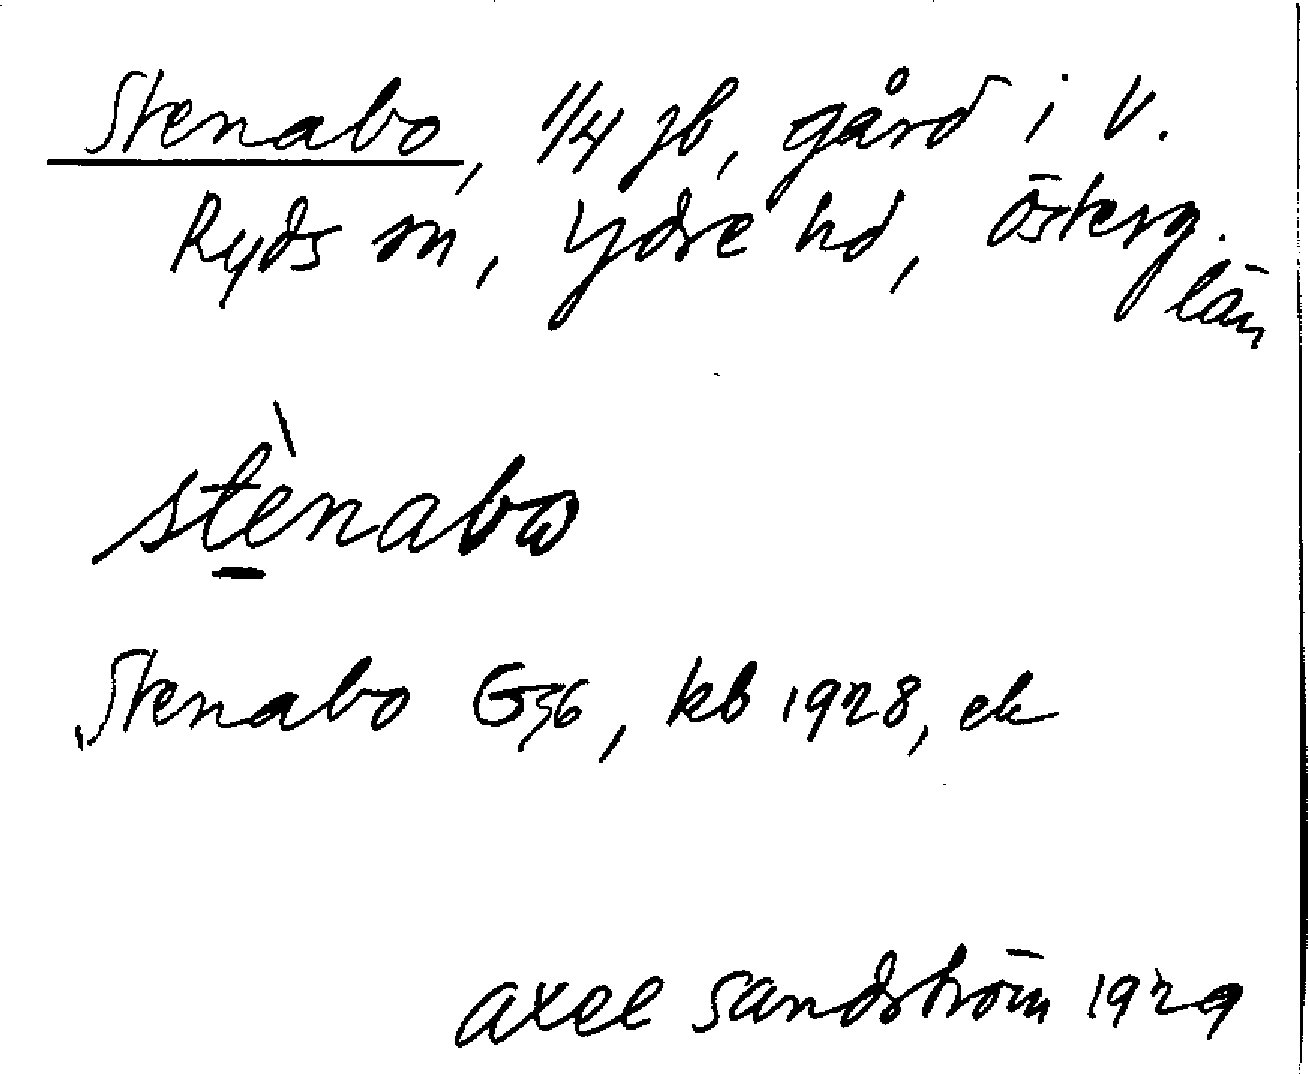 Stenabo, 1/4 jb, gård i V.
Ryds sn, Ydre hd, Österg.
län
stènabω
Stenabo G36, kb 1928, ek
Axel Sandström 1929